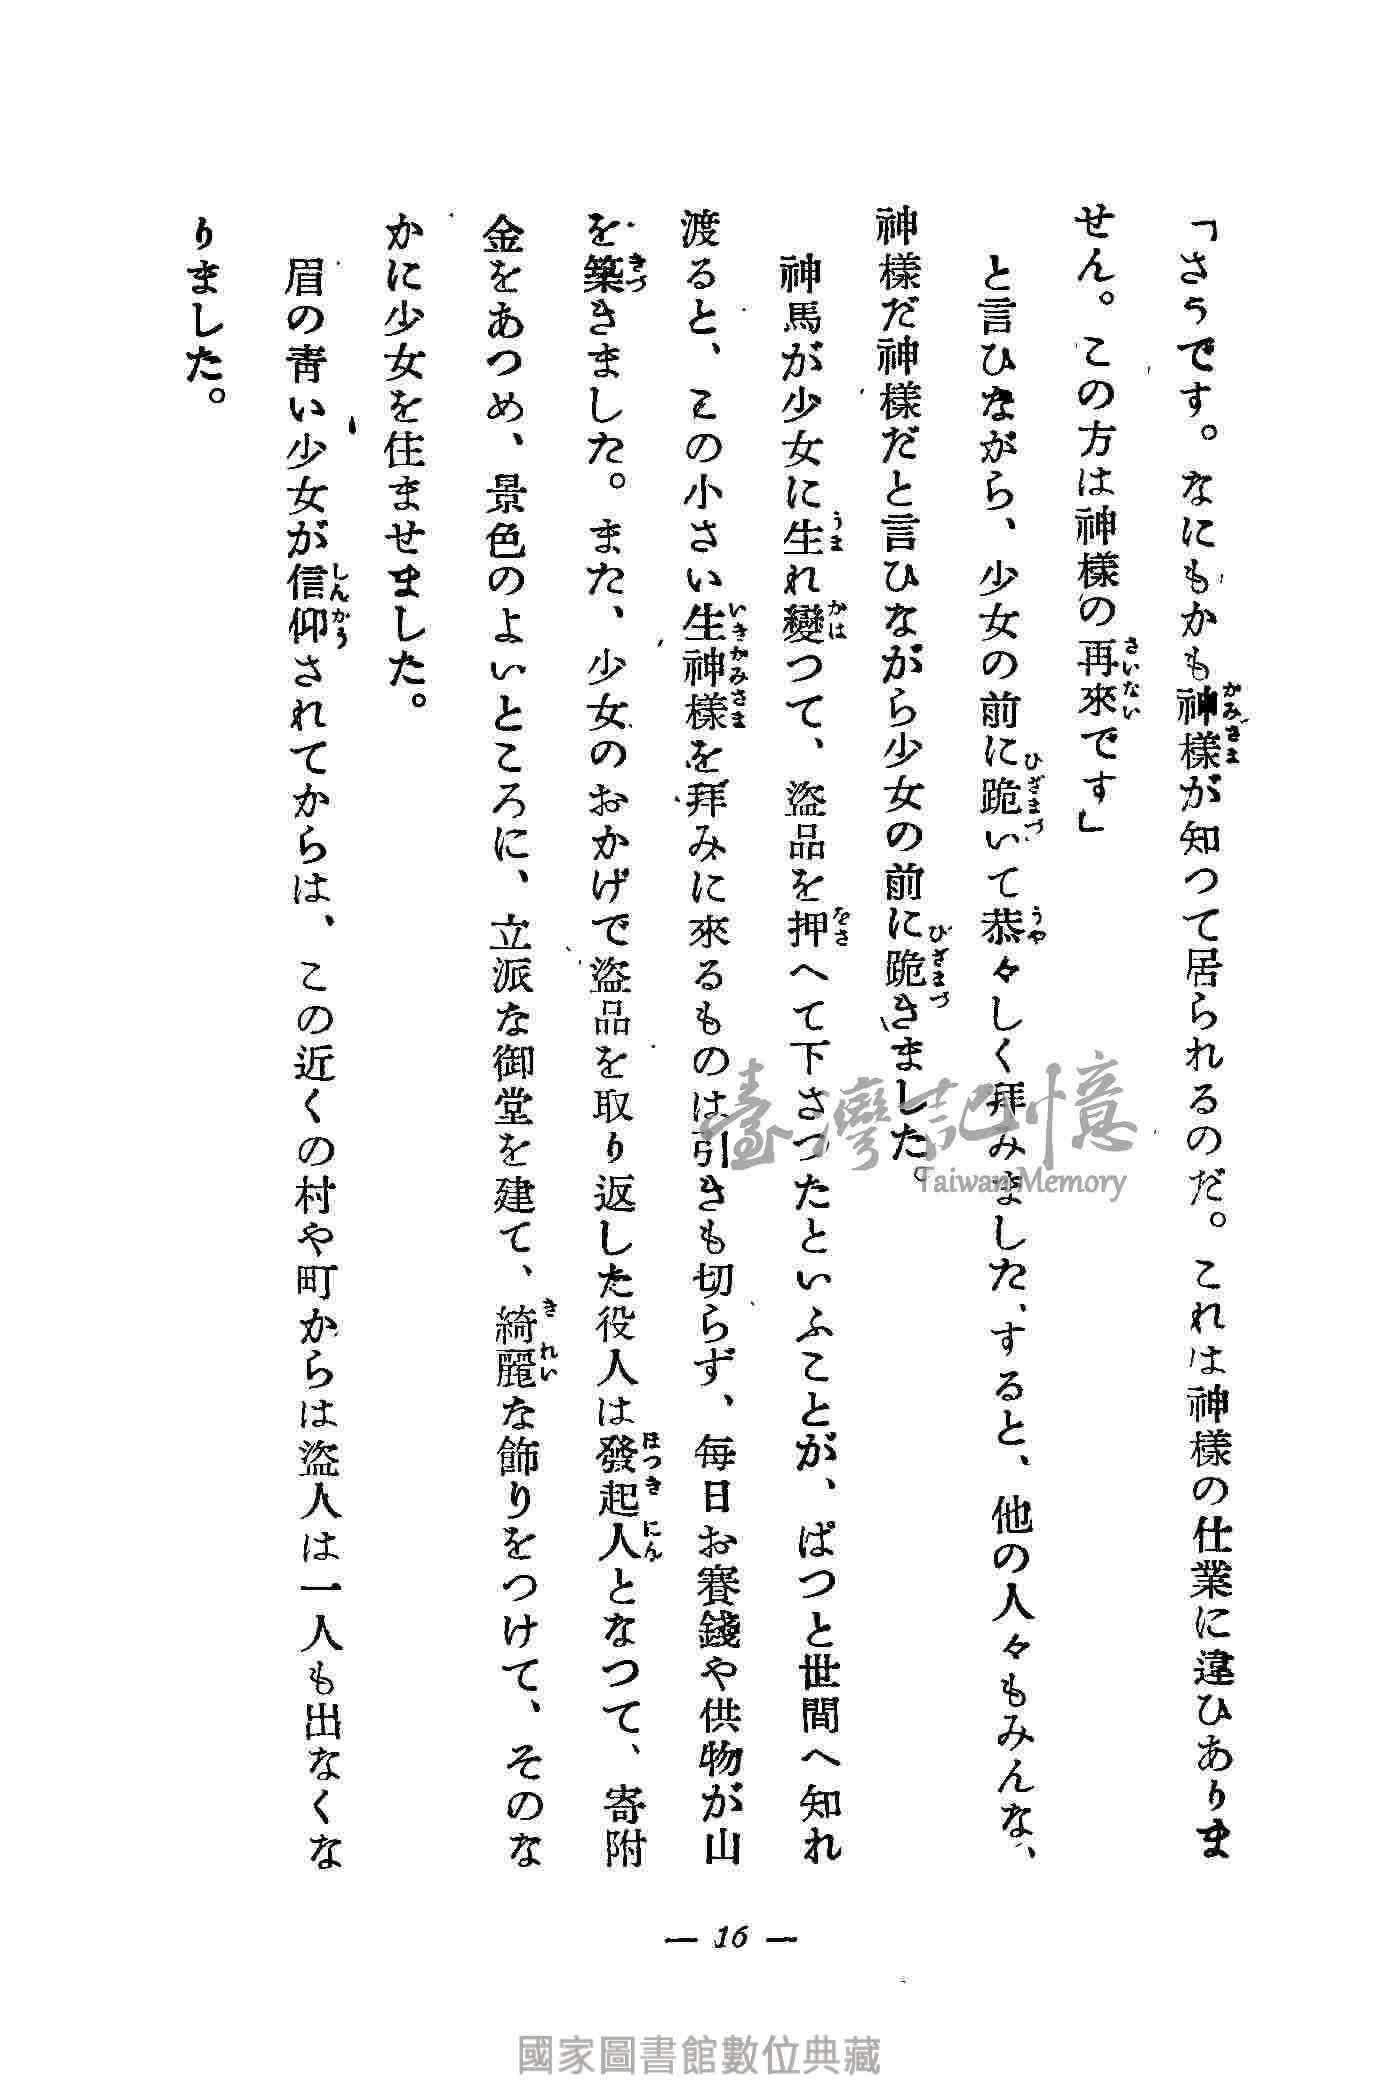 「さうです。なにもかも神様が知つて居られるのだ。これは神様の仕業に違ひありま
せん。この方は神様の再來です」
と言ひながら、少女の前に跪いて恭々しく拜みました、すると、他の人々もみんな、
神様だ神様だと言ひながら少女の前に跪きました。
神馬が少女に生れ變つて、盜品を押へて下さつたといふことが、ぱつと世間へ知れ
渡ると、この小さい生神様を拜みに來るものは引きも切らず、每日お賽錢や供物が山
を築きました。また、少女のおかげで盜品を取り返した役人は發起人となつて、寄附
金をあつめ、景色のよいところに、立派な御堂を建て、綺麗な飾りをつけて、そのな
かに少女を住ませました。
眉の靑い少女が信仰されてからは、この近くの村や町からは盜人は一人も出なくな
りました。
かみざま
さいない
ひざまづ
うや
びざまづ
うま
かは
をさ
いきかみさま
きづ
ほつきにん
きれい
しんかう
— 16 —
臺灣記憶
Taiwan Memory
國家圖書館數位典藏